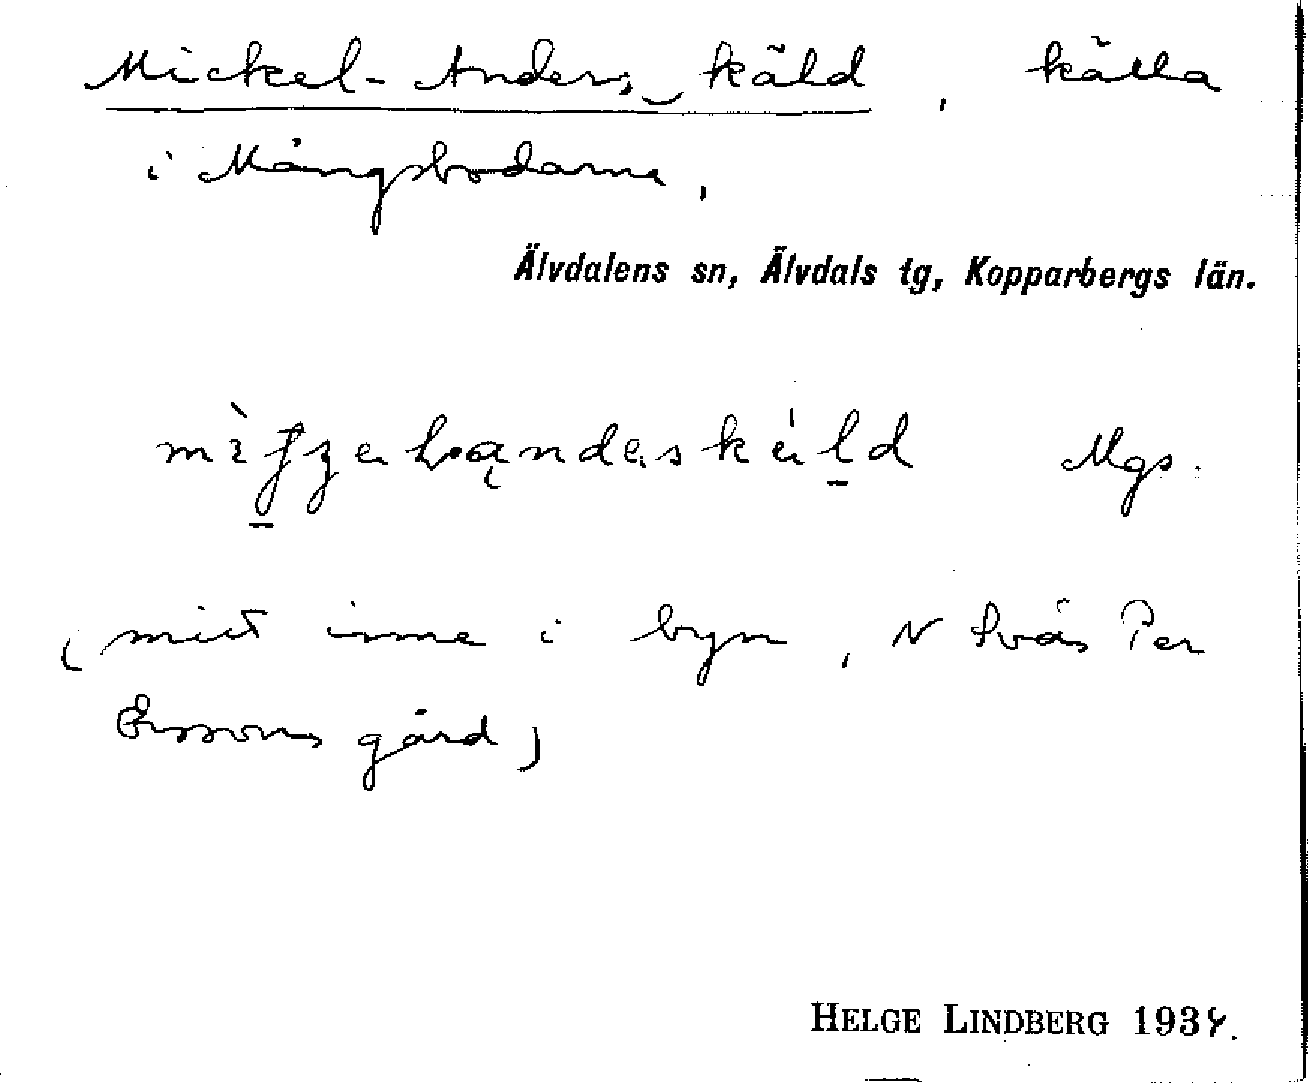 Mickel-Anders‿käld, källa
i Mångsbodarna,
Älvdalens sn, Älvdals tg, Kopparbergs län.
Mgs.
(mitt inne i byn, N Svås Per
Erssons gård)
HELGE LINDBERG 1934.